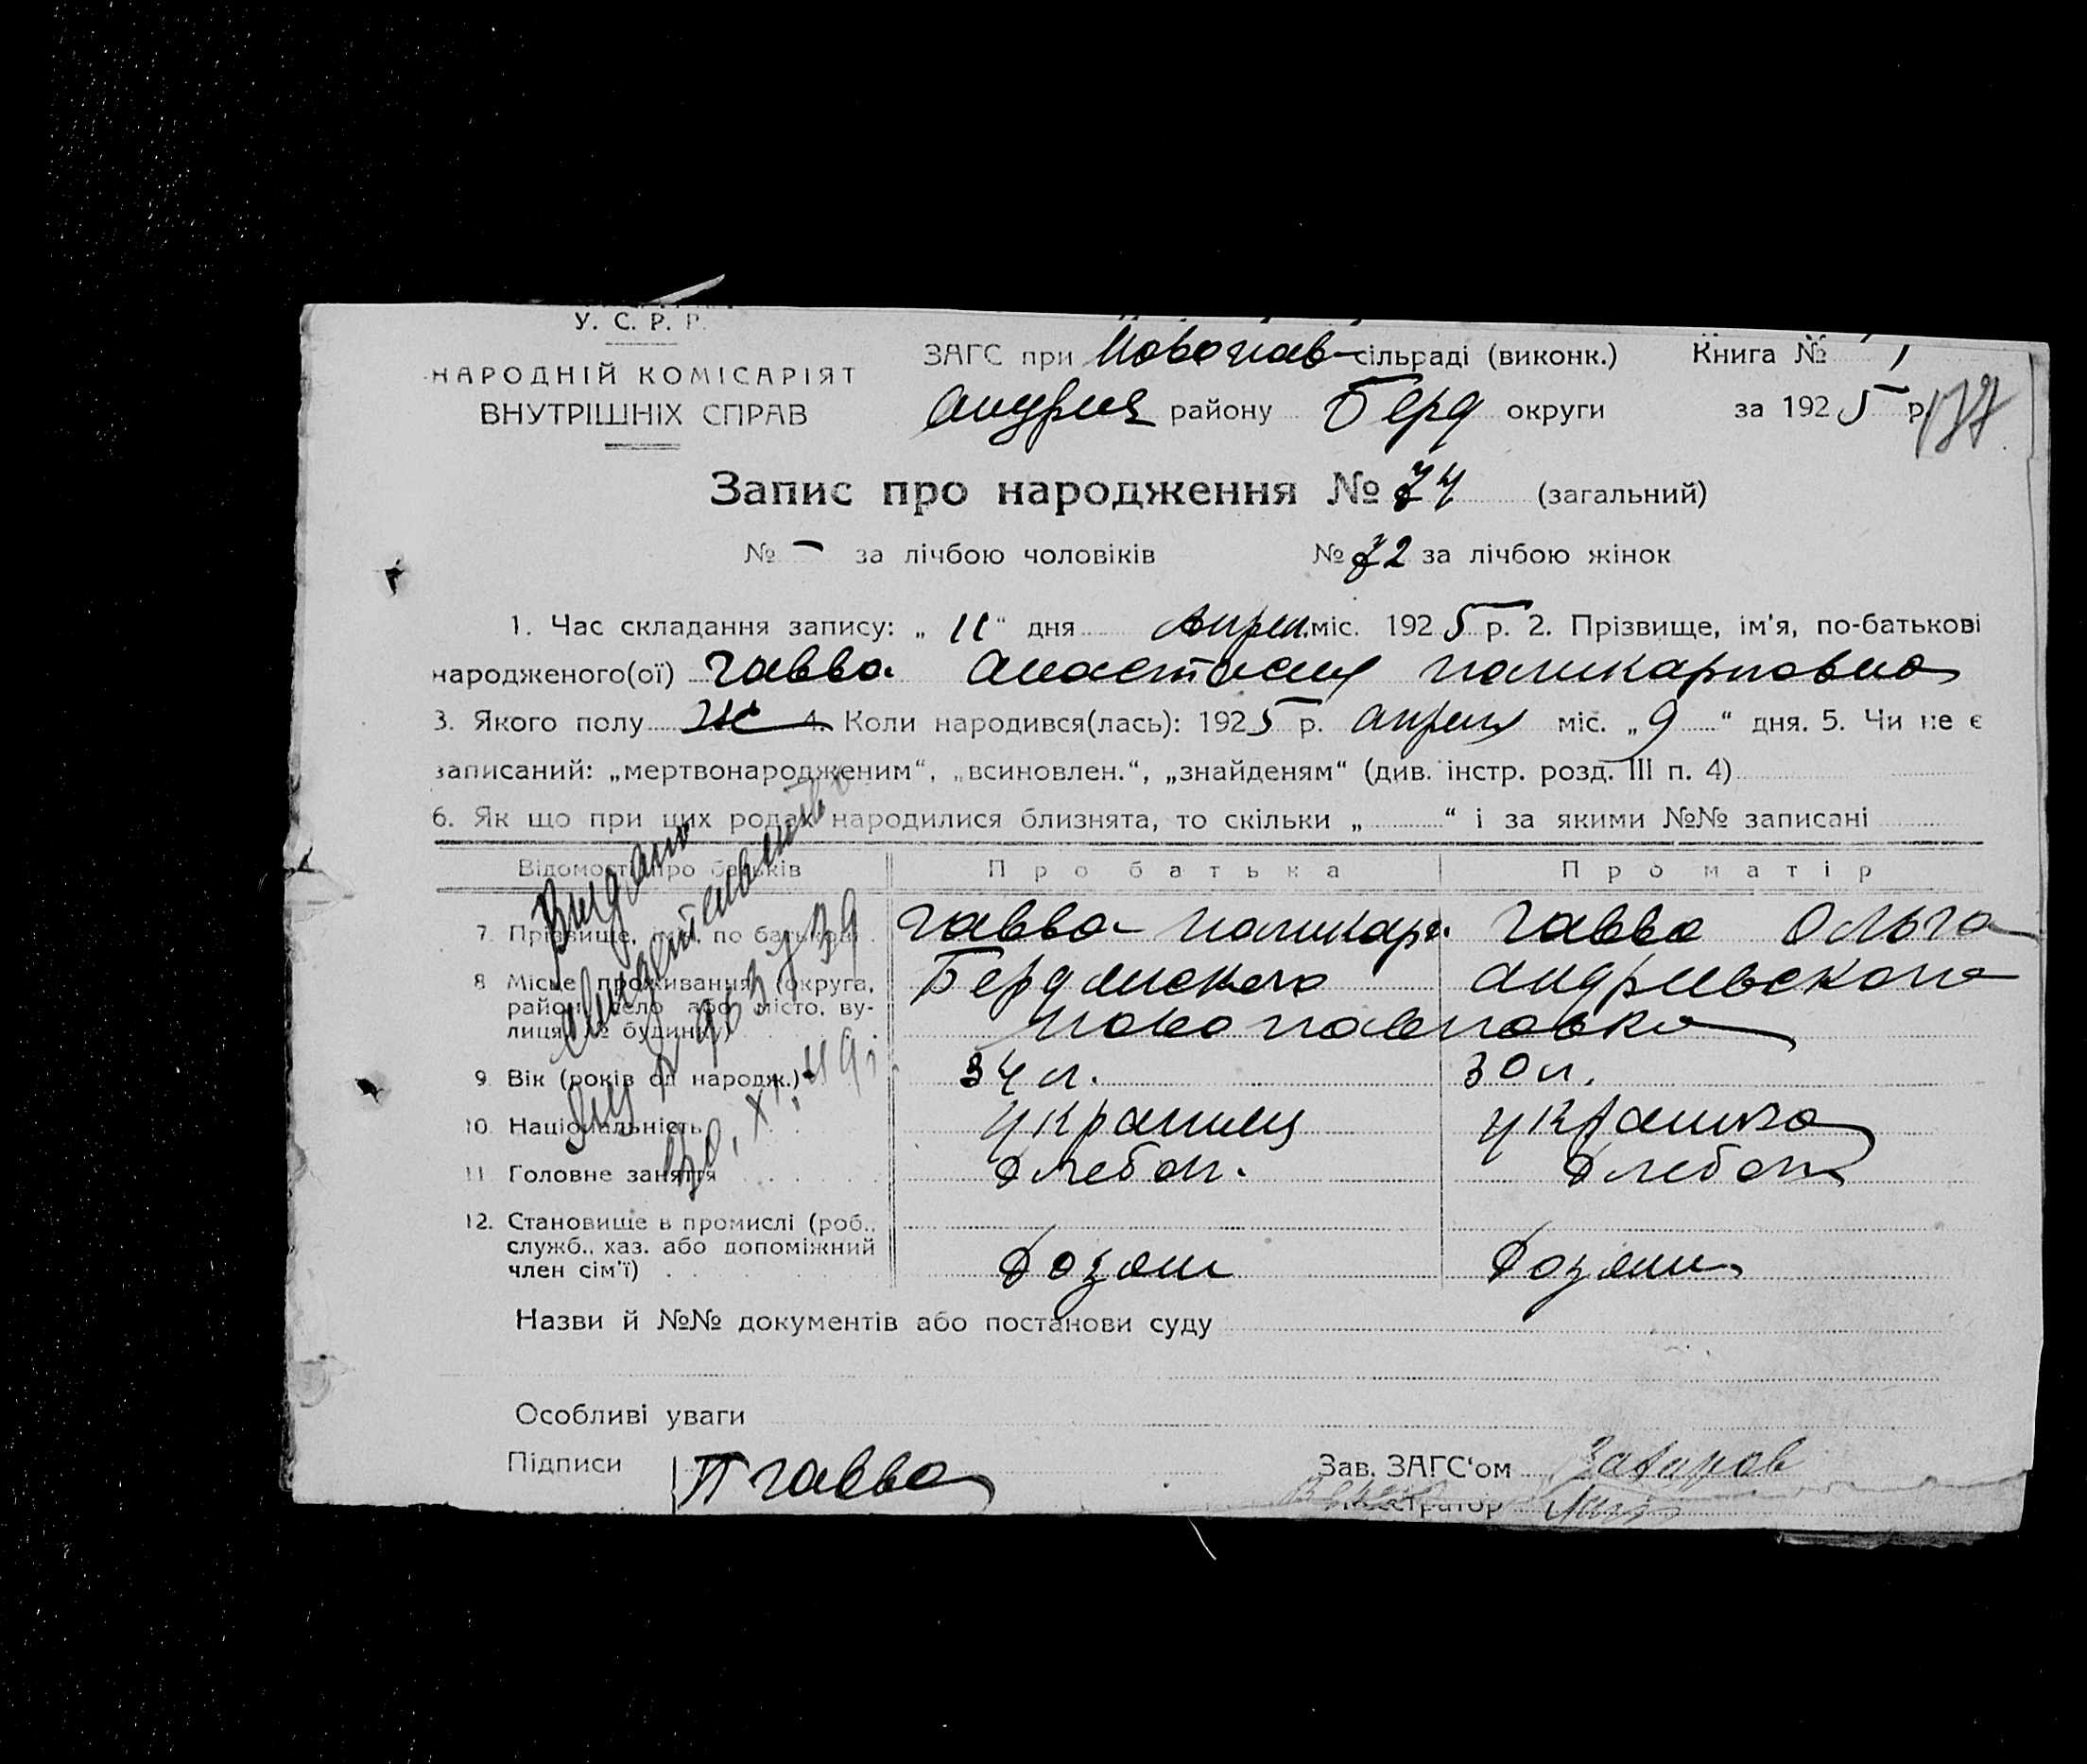 У. С. Р. Р.
НАРОДНІЙ КОМІСАРІЯТ
ВНУТРІШНІХ СПРАВ
ЗАГС при Новопав- сільраді (виконк.) Книга № 1
Андрив району Берд округи за 1925 р. 137
Запис про народження № 74 (загальний)
№ - за лічбою чоловіків № 72 за лічбою жінок
1. Час складання запису: „ 11 “ дня Апрел. міс. 1925 р. 2. Прізвище, ім'я, по-батькові
народженого(ої) Гавва Анастасия Поликарповна
3. Якого полу Ж 4. Коли народився(лась): 1925 р. апреля міс. „ 9 “ дня. 5. Чи не є
записаний: „мертвонародженим“, „всиновлен.“, „знайденям“ (див. інстр. розд. III п. 4)
6. Як що при цих родах народилися близнята, то скільки „ “ і за якими №№ записані
Відомості про батьків Про батька Про матір
7. Прізвище, ім'я, по батькові Гавва Поликарп. Гавва Ольга
8. Місце проживання (округа, Бердянского Андриевского
район, село або місто, ву-
лиця, № будинку) Новопавловка
9. Вік (років од народж.) 34 л. 30 л.
10. Національність украинец украинка
11. Головне заняття хлебоп. хлебоп
12. Становище в промислі (роб.,
служб., хаз. або допоміжний
член сім'ї) хозяин хозяин
Видано
Назви й №№ документів або постанови суду
Особливі уваги
Підписи П Гавва Зав. ЗАГС'ом Захаров